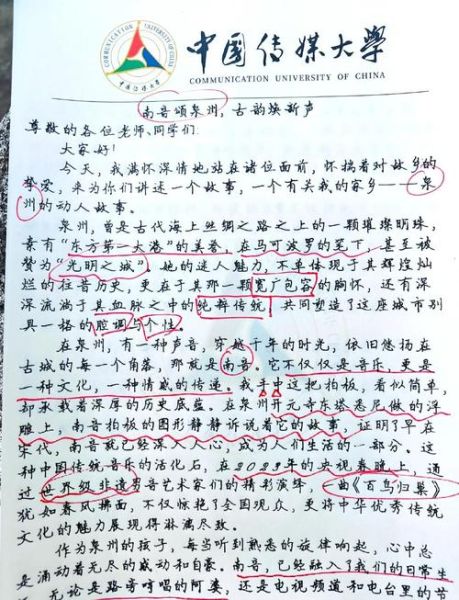 中国传媒大学
COMMUNICATION UNIVERSITY OF CHINA
COMMUNICATION UNIVERSITY OF CHINA
中国传媒大学
南音颂泉州，古韵焕新声
尊敬的各位老师、同学们：
大家好！
今天，我满怀深情地站在诸位面前，怀揣着对故乡的
挚爱，来为你们讲述一个故事，一个有关我的家乡——泉
州的动人故事。
泉州，曾是古代海上丝绸之路之上的一颗璀璨明珠，
素有“东方第一大港”的美誉，在马可波罗的笔下，甚至被
赞为“光明之城”。她的迷人魅力，不单体现于其辉煌灿
烂的往昔历史，更在于其那一颗宽广包容的胸怀，还有深
深流淌于其血脉之中的纯粹传统，共同塑造了这座城市别
具一格的腔调与个性。
在泉州，有一种声音，穿越千年的时光，依旧悠扬在
古城的每一个角落，那就是南音。它不仅仅是音乐，更是
一种文化，一种情感的传递。我手中这把拍板，看似简单，
却承载着深厚的历史底蕴。在泉州开元寺东塔悉尼做的浮
雕上，南音拍板的图形静静诉说着它的故事，证明了早在
宋代，南音就已经深入人心，成为人们生活的一部分。这
种中国传统音乐的活化石，在2023年的央视春晚上，通
过世界级非遗南音艺术家们的精彩演绎，一曲《百鸟归巢》
犹如春风拂面，不仅惊艳了全国观众，更将中华优秀传统
文化的魅力展现得淋漓尽致。
作为泉州的孩子，每当听到熟悉的旋律响起，心中总
是涌动着无尽的感动和自豪。南音，已经融入了我们的日常生
无论是路旁哼唱的阿婆，还是电视频道和电台里的节